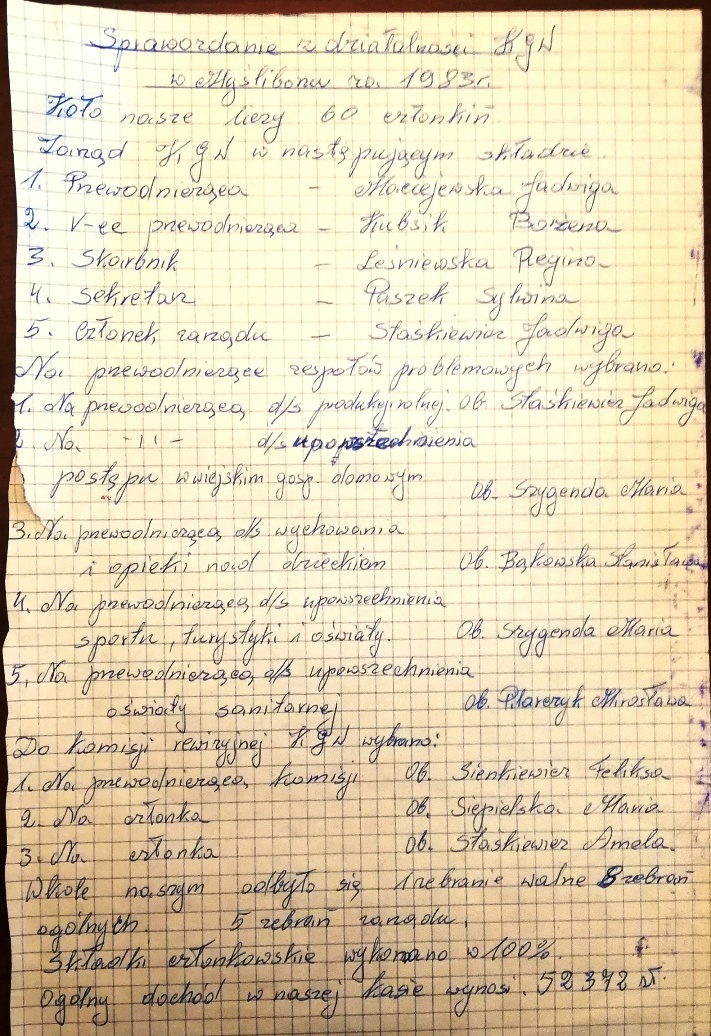 Sprawozdanie z działalności KGW
w Myśliborzu za 1983r.
Koło nasze liczy 60 członkiń
Zarząd KGW w następującym składzie.
1. Przewodnicząca - Maciejewska Jadwiga
2. V-ce przewodnicząca - Kubsik Bożena
3. Skarbnik - Leśniewska Regina
4. Sekretarz - Paszek Sylwina
5. Członek zarządu - Staśkiewicz Jadwiga
Na przewodniczące zespołów problemowych wybrano:
1. Na przewodniczącą d/s produkcji rolnej. Ob Staśkiewicz Jadwiga
2. Na -11- d/s upowszechnienia
postępu w wiejskim gosp. domowym Ob. Szygenda Maria
3. Na przewodniczącą d/s wychowania
i opieki nad dzieckiem Ob. Bąkowska Stanisława
4. Na przewodniczącą d/s upowszechnienia
sportu, turystyki i oświaty. Ob. Szygenda Maria
5. Na przewodniczącą d/s upowszechnienia
oświaty sanitarnej Ob. Pilarczyk Mirosława
Do komisji rewizyjnej KGW wybrano:
1. Na przewodniczącą komisji Ob. Sienkiewicz Feliksa
2. Na członka Ob. Siepielska Maria
3. Na członka Ob. Staśkiewicz Amela.
W kole naszym odbyło się 1 zebranie walne 8 zebrań
ogólnych. 5 zebrań zarządu.
Składki członkowskie wykonano w 100%.
Ogólny dochód w naszej kasie wynosi. 52 372 zł.